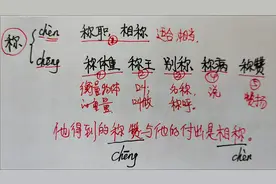 称
chèn 称职 相称 适合,相当。
chēng 称体重 称王 别称 称病 称赞
① ② ③ ④ ⑤
衡量物体 叫; 名称 说 赞扬
的重量 叫做 称呼。
他得到的称赞与他的付出是相称。
chēng chèn